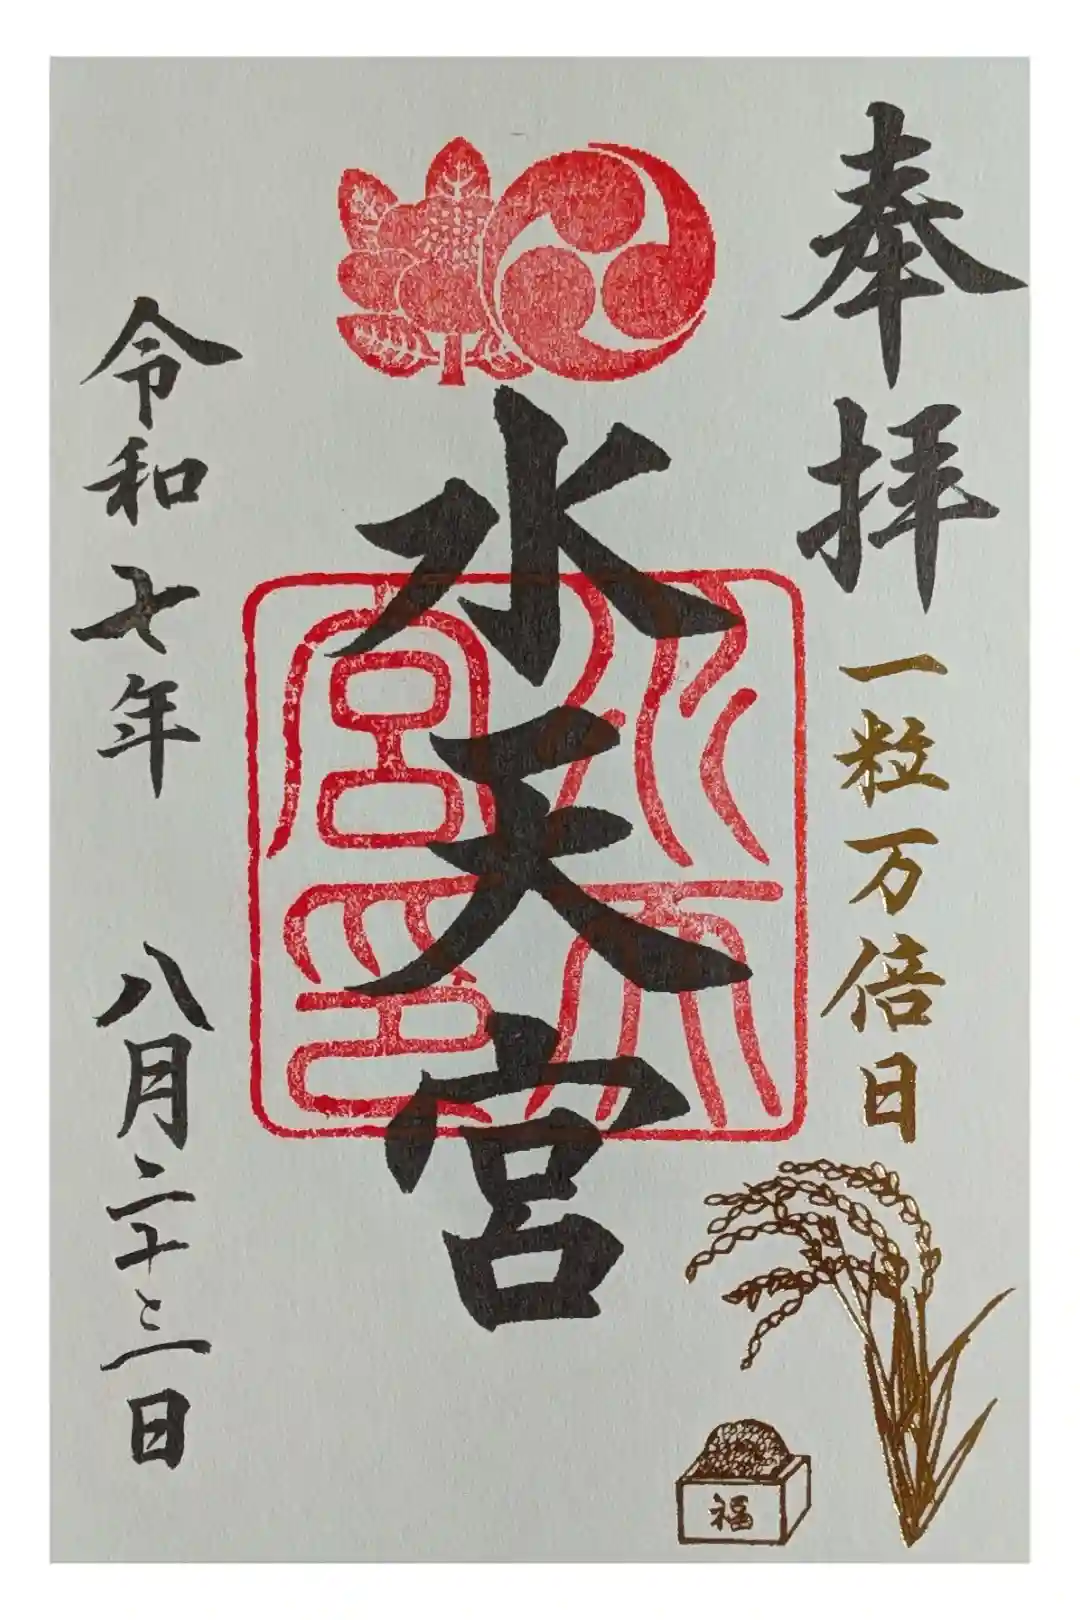 奉拝
一粒万倍日
福
水天宮
水天宮印
令和七年 八月二十三日